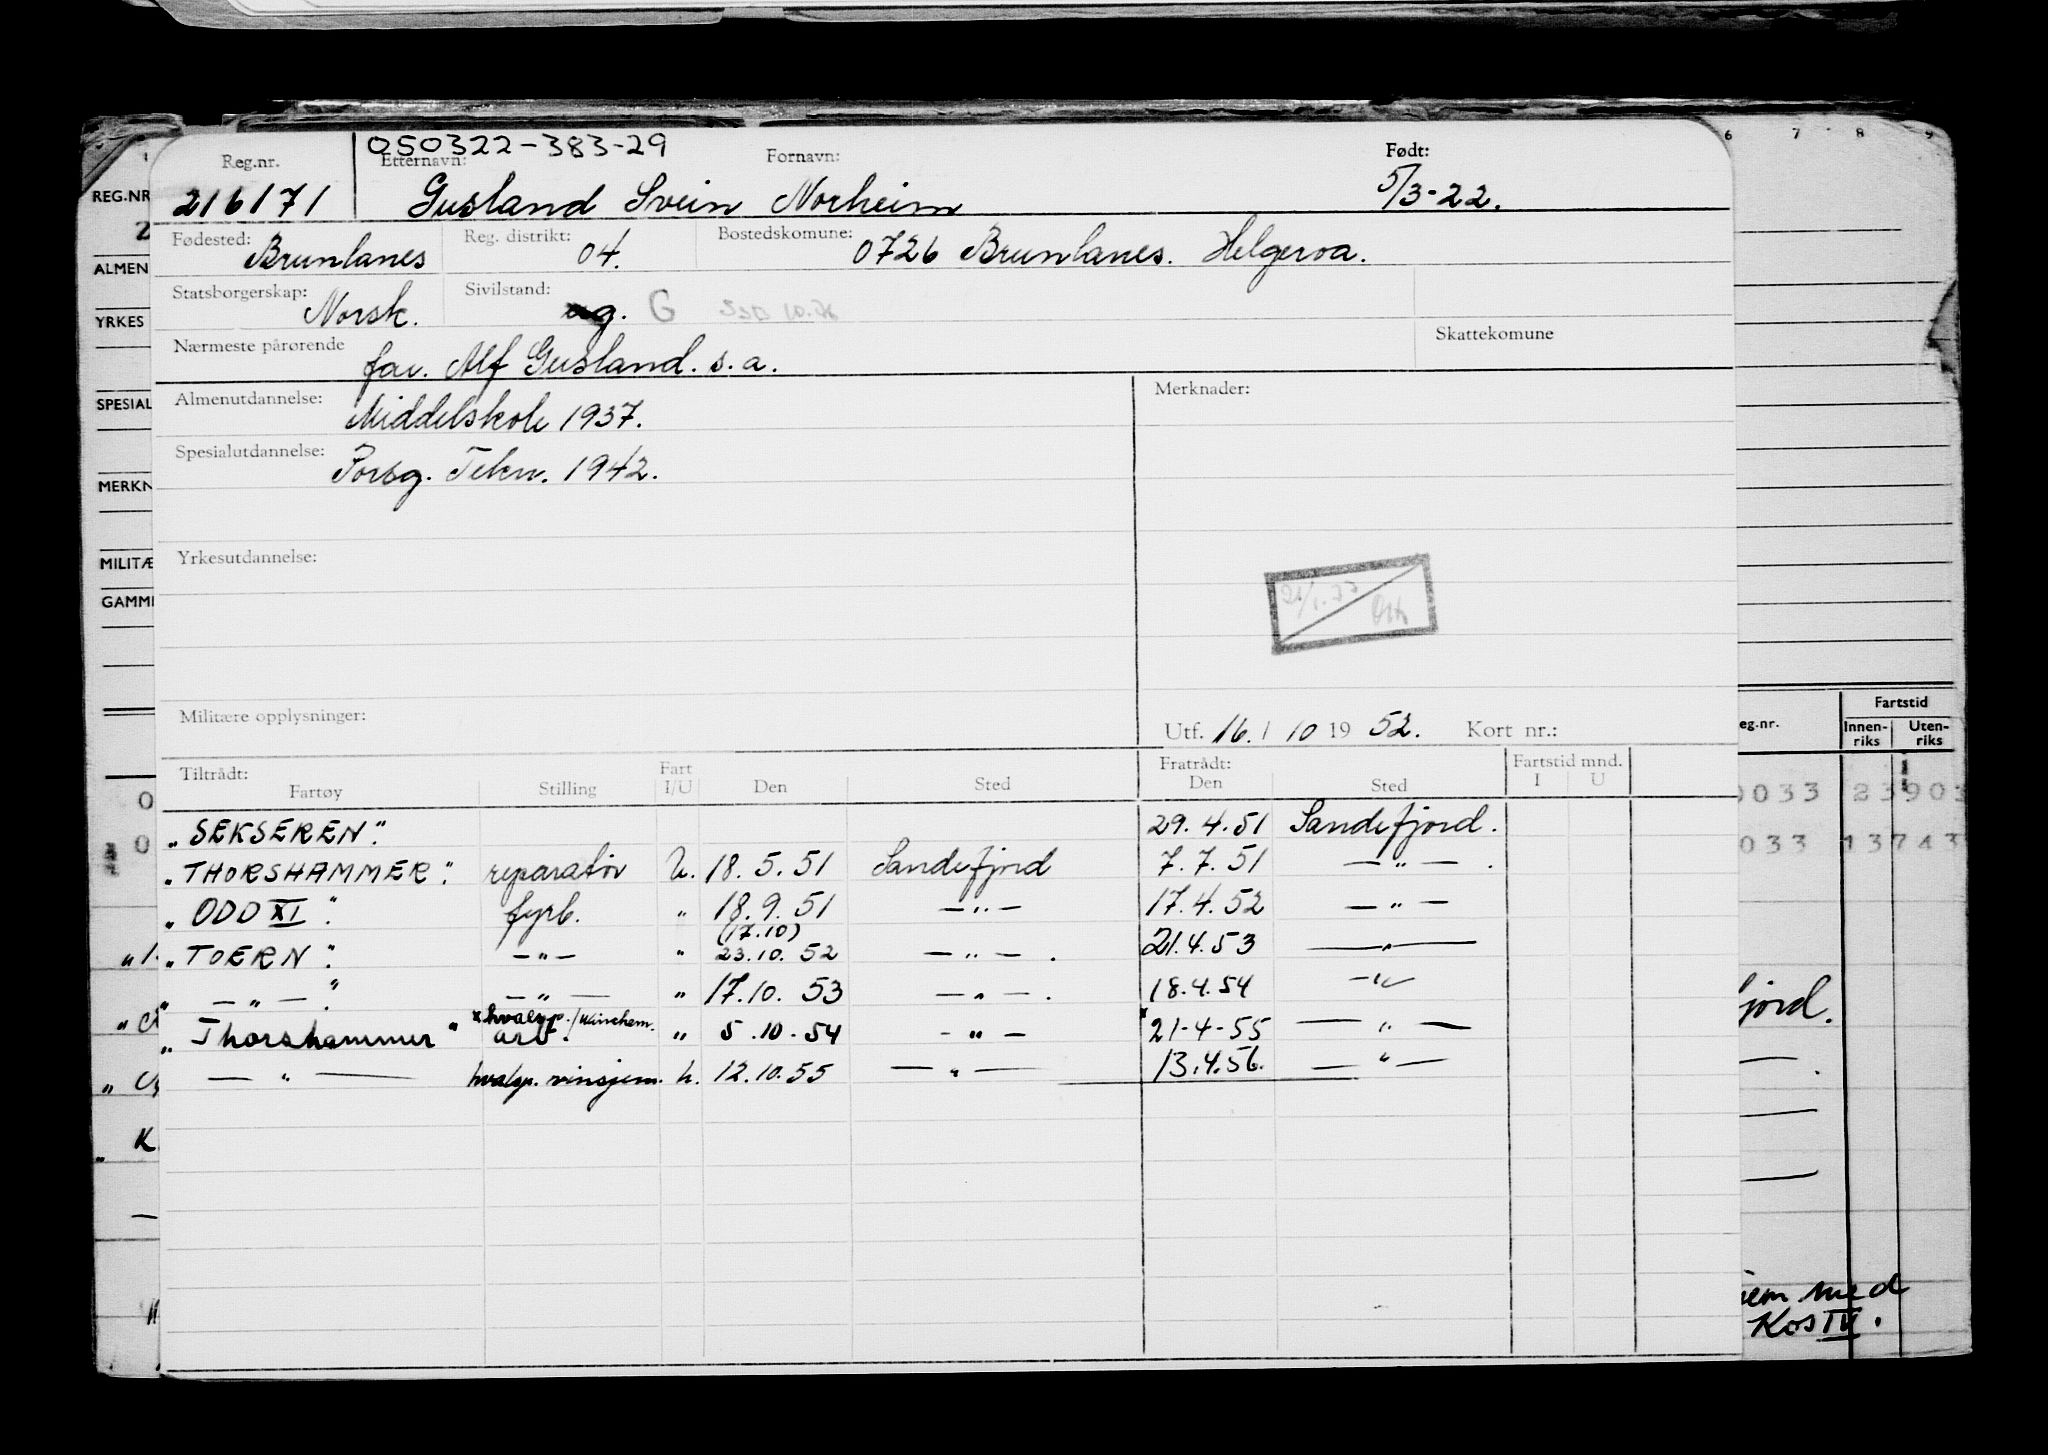 6 7 8 9
050322-383-29
Reg.nr. Etternavn: Fornavn: Født:
REG.NR
216171 Gusland Svein Norheim 5/3-22.
2
Fødested: Brunlanes Reg. distrikt: 04. Bostedskomune: 0726 Brunlanes. Helgeroa.
ALMEN
Statsborgerskap: Norsk. Sivilstand: ug. G
YRKES
Nærmeste pårørende far. Alf Gusland. s.a. Skattekomune
SPESIAL
Almenutdannelse: Middelskole 1937. Merknader:
Spesialutdannelse: Porsg. Tekn. 1942.
MERKN
Yrkesutdannelse:
MILITÆ
GAMM
Militære opplysninger: Utf. 16. / 10 19 52. Kort nr.:
eg.nr. Fartstid
Innen-riks Uten-riks
Tiltrådt: Fratrådt: Fartstid mnd.
Fartøy Stilling Fart I/U Den Sted Den Sted I U
"SEKSEREN". 29.4.51 Sandefjord.
"THORSHAMMER". reparatør U. 18.5.51 Sandefjord 7.7.51 — " — .
"ODD XI". fyrb. " 18.9.51 — " — 17.4.52 — " —
(17.10)
"TOERN". — " — " 23.10.52 — " — . 21.4.53 — " —
" — " — ". — " — " 17.10.53 — " — . 18.4.54 — " —
"Thorshammer" x hvalsp./Winchem. arb. " 5.10.54 — " — x 21-4-55 — " —
— " — hvalsp. vinsjem. U. 12.10.55 — " — 13.4.56. — " —
0033 23903
033 13743
fjord.
K
jem med
Kos IV.